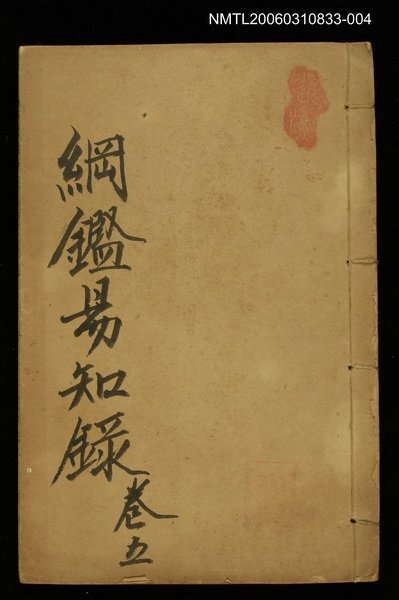 NMTL20060310833-004
綱鑑易知錄
卷五